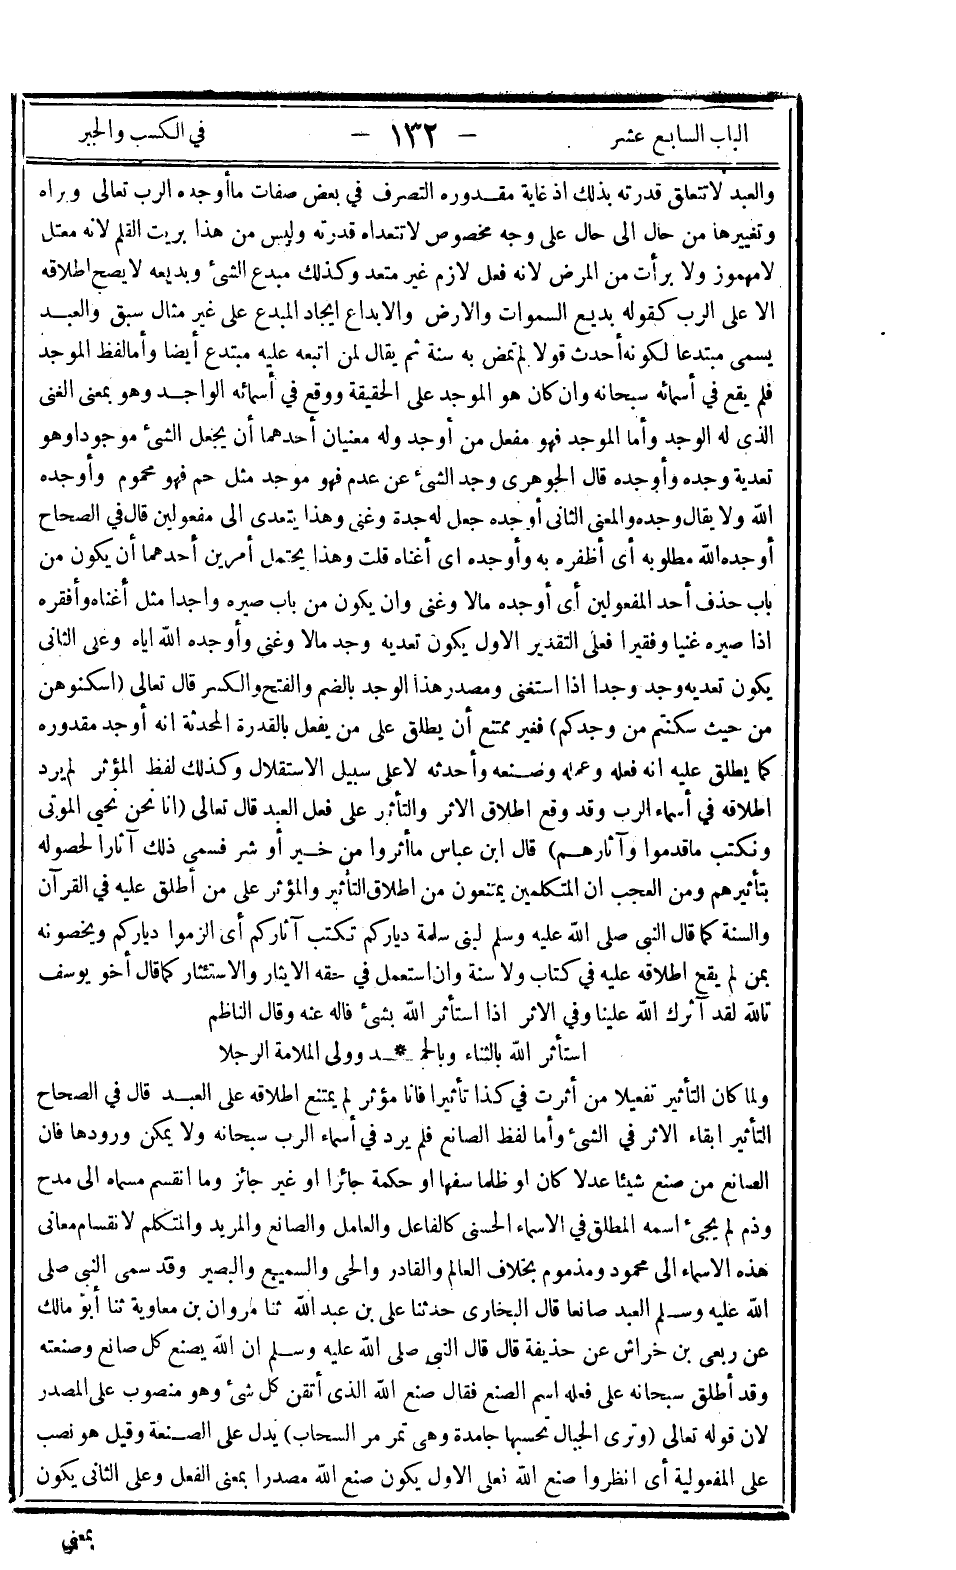 الباب السابع عشر — ١٣٢ — في الكسب والجبر
والعبد لاتتعلق قدرته بذلك اذ غاية مقدوره التصرف في بعض صفات ماأوجده الرب تعالى وبراه
وتغييرها من حال الى حال على وجه مخصوص لاتتعداه قدرته وليس من هذا بريت القلم لانه معتل
لامهموز ولا برأت من المرض لانه فعل لازم غير متعد وكذلك مبدع الشئ وبديعه لايصح اطلاقه
الا على الرب كقوله بديع السموات والارض والابداع ايجاد المبدع على غير مثال سبق والعبد
يسمى مبتدعا لكونه أحدث قولا لم تمض به سنة ثم يقال لمن اتبعه عليه مبتدع أيضا وأمالفظ الموجد
فلم يقع في أسمائه سبحانه وان كان هو الموجد على الحقيقة ووقع في أسمائه الواجد وهو بمعنى الغنى
الذى له الوجد وأما الموجد فهو مفعل من أوجد وله معنيان أحدهما أن يجعل الشئ موجودا وهو
تعدية وجده وأوجده قال الجوهرى وجد الشئ عن عدم فهو موجد مثل حم فهو محموم وأوجده
الله ولا يقال وجده والمعنى الثانى أوجده جعل له جدة وغنى وهذا يتعدى الى مفعولين قال في الصحاح
أوجده الله مطلوبه أى أظفره به وأوجده اى أغناه قلت وهذا يحتمل أمرين أحدهما أن يكون من
باب حذف أحد المفعولين أى أوجده مالا وغنى وان يكون من باب صيره واجدا مثل أغناه وأفقره
اذا صيره غنيا وفقيرا فعلى التقدير الاول يكون تعديه وجد مالا وغنى وأوجده الله اياه وعلى الثانى
يكون تعديه وجد وجدا اذا استغنى ومصدر هذا الوجد بالضم والفتح والكسر قال تعالى (اسكنوهن
من حيث سكنتم من وجدكم) فغير ممتنع أن يطلق على من يفعل بالقدرة المحدثة انه أوجد مقدوره
كما يطلق عليه انه فعله وعمله وصنعه وأحدثه لاعلى سبيل الاستقلال وكذلك لفظ المؤثر لم يرد
اطلاقه في أسماء الرب وقد وقع اطلاق الاثر والتأثير على فعل العبد قال تعالى (انا نحن نحيي الموتى
ونكتب ماقدموا وآثارهم) قال ابن عباس ماأثروا من خير أو شر فسمى ذلك آثارا لحصوله
بتأثيرهم ومن العجب ان المتكلمين يمتنعون من اطلاق التأثير والمؤثر على من أطلق عليه في القرآن
والسنة كما قال النبي صلى الله عليه وسلم لبنى سلمة دياركم تكتب آثاركم أى الزموا دياركم ويخصونه
بمن لم يقع اطلاقه عليه في كتاب ولا سنة وان استعمل في حقه الايثار والاستئثار كما قال أخو يوسف
تالله لقد آثرك الله علينا وفي الاثر اذا استأثر الله بشئ فاله عنه وقال الناظم
استأثر الله بالثناء وبالحمـ * ـد وولى الملامة الرجلا
ولما كان التأثير تفعيلا من أثرت في كذا تأثيرا فانا مؤثر لم يمتنع اطلاقه على العبد قال في الصحاح
التأثير ابقاء الاثر في الشئ وأما لفظ الصانع فلم يرد في أسماء الرب سبحانه ولا يمكن ورودها فان
الصانع من صنع شيئا عدلا كان او ظلما سفها او حكمة جائزا او غير جائز وما انقسم مسماه الى مدح
وذم لم يجئ اسمه المطلق في الاسماء الحسنى كالفاعل والعامل والصانع والمريد والمتكلم لانقسام معانى
هذه الاسماء الى محمود ومذموم بخلاف العالم والقادر والحى والسميع والبصير وقد سمى النبي صلى
الله عليه وسلم العبد صانعا قال البخارى حدثنا على بن عبد الله ثنا مروان بن معاوية ثنا أبو مالك
عن ربعى بن خراش عن حذيفة قال قال النبي صلى الله عليه وسلم ان الله يصنع كل صانع وصنعته
وقد أطلق سبحانه على فعله اسم الصنع فقال صنع الله الذى أتقن كل شئ وهو منصوب على المصدر
لان قوله تعالى (وترى الجبال تحسبها جامدة وهى تمر مر السحاب) يدل على الصنعة وقيل هو نصب
على المفعولية أى انظروا صنع الله فعلى الاول يكون صنع الله مصدرا بمعنى الفعل وعلى الثانى يكون
بمعنى